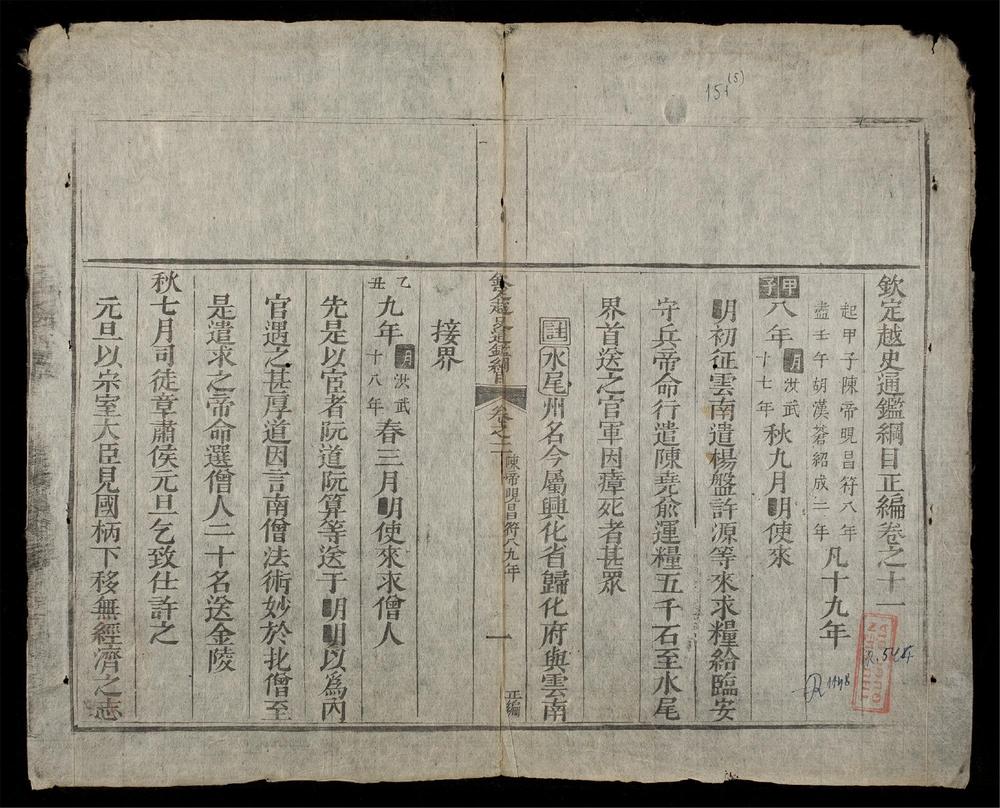 151
(5)
欽定越史通鑑綱目正編卷之十一
起甲子陳帝晛昌符八年
盡壬午胡漢蒼紹成二年
凡十九年
甲子八年明洪武十七年秋九月明使來
明初征雲南遣楊盤許源等來求糧給臨安
守兵帝命行遣陳堯俞運糧五千石至水尾
界首送之官軍因瘴死者甚眾
註水尾州名今屬興化省歸化府與雲南
欽定越史通鑑綱目
卷之十一
陳帝晛昌符八九年
一
正編
接界
乙丑九年明洪武十八年春三月明使來求僧人
先是以宦者阮道阮算等送于明明以為內
官遇之甚厚道因言南僧法術妙於北僧至
是遣求之帝命選僧人二十名送金陵
秋七月司徒章肅侯元旦乞致仕許之
元旦以宗室大臣見國柄下移無經濟之志
R.524
R 1148